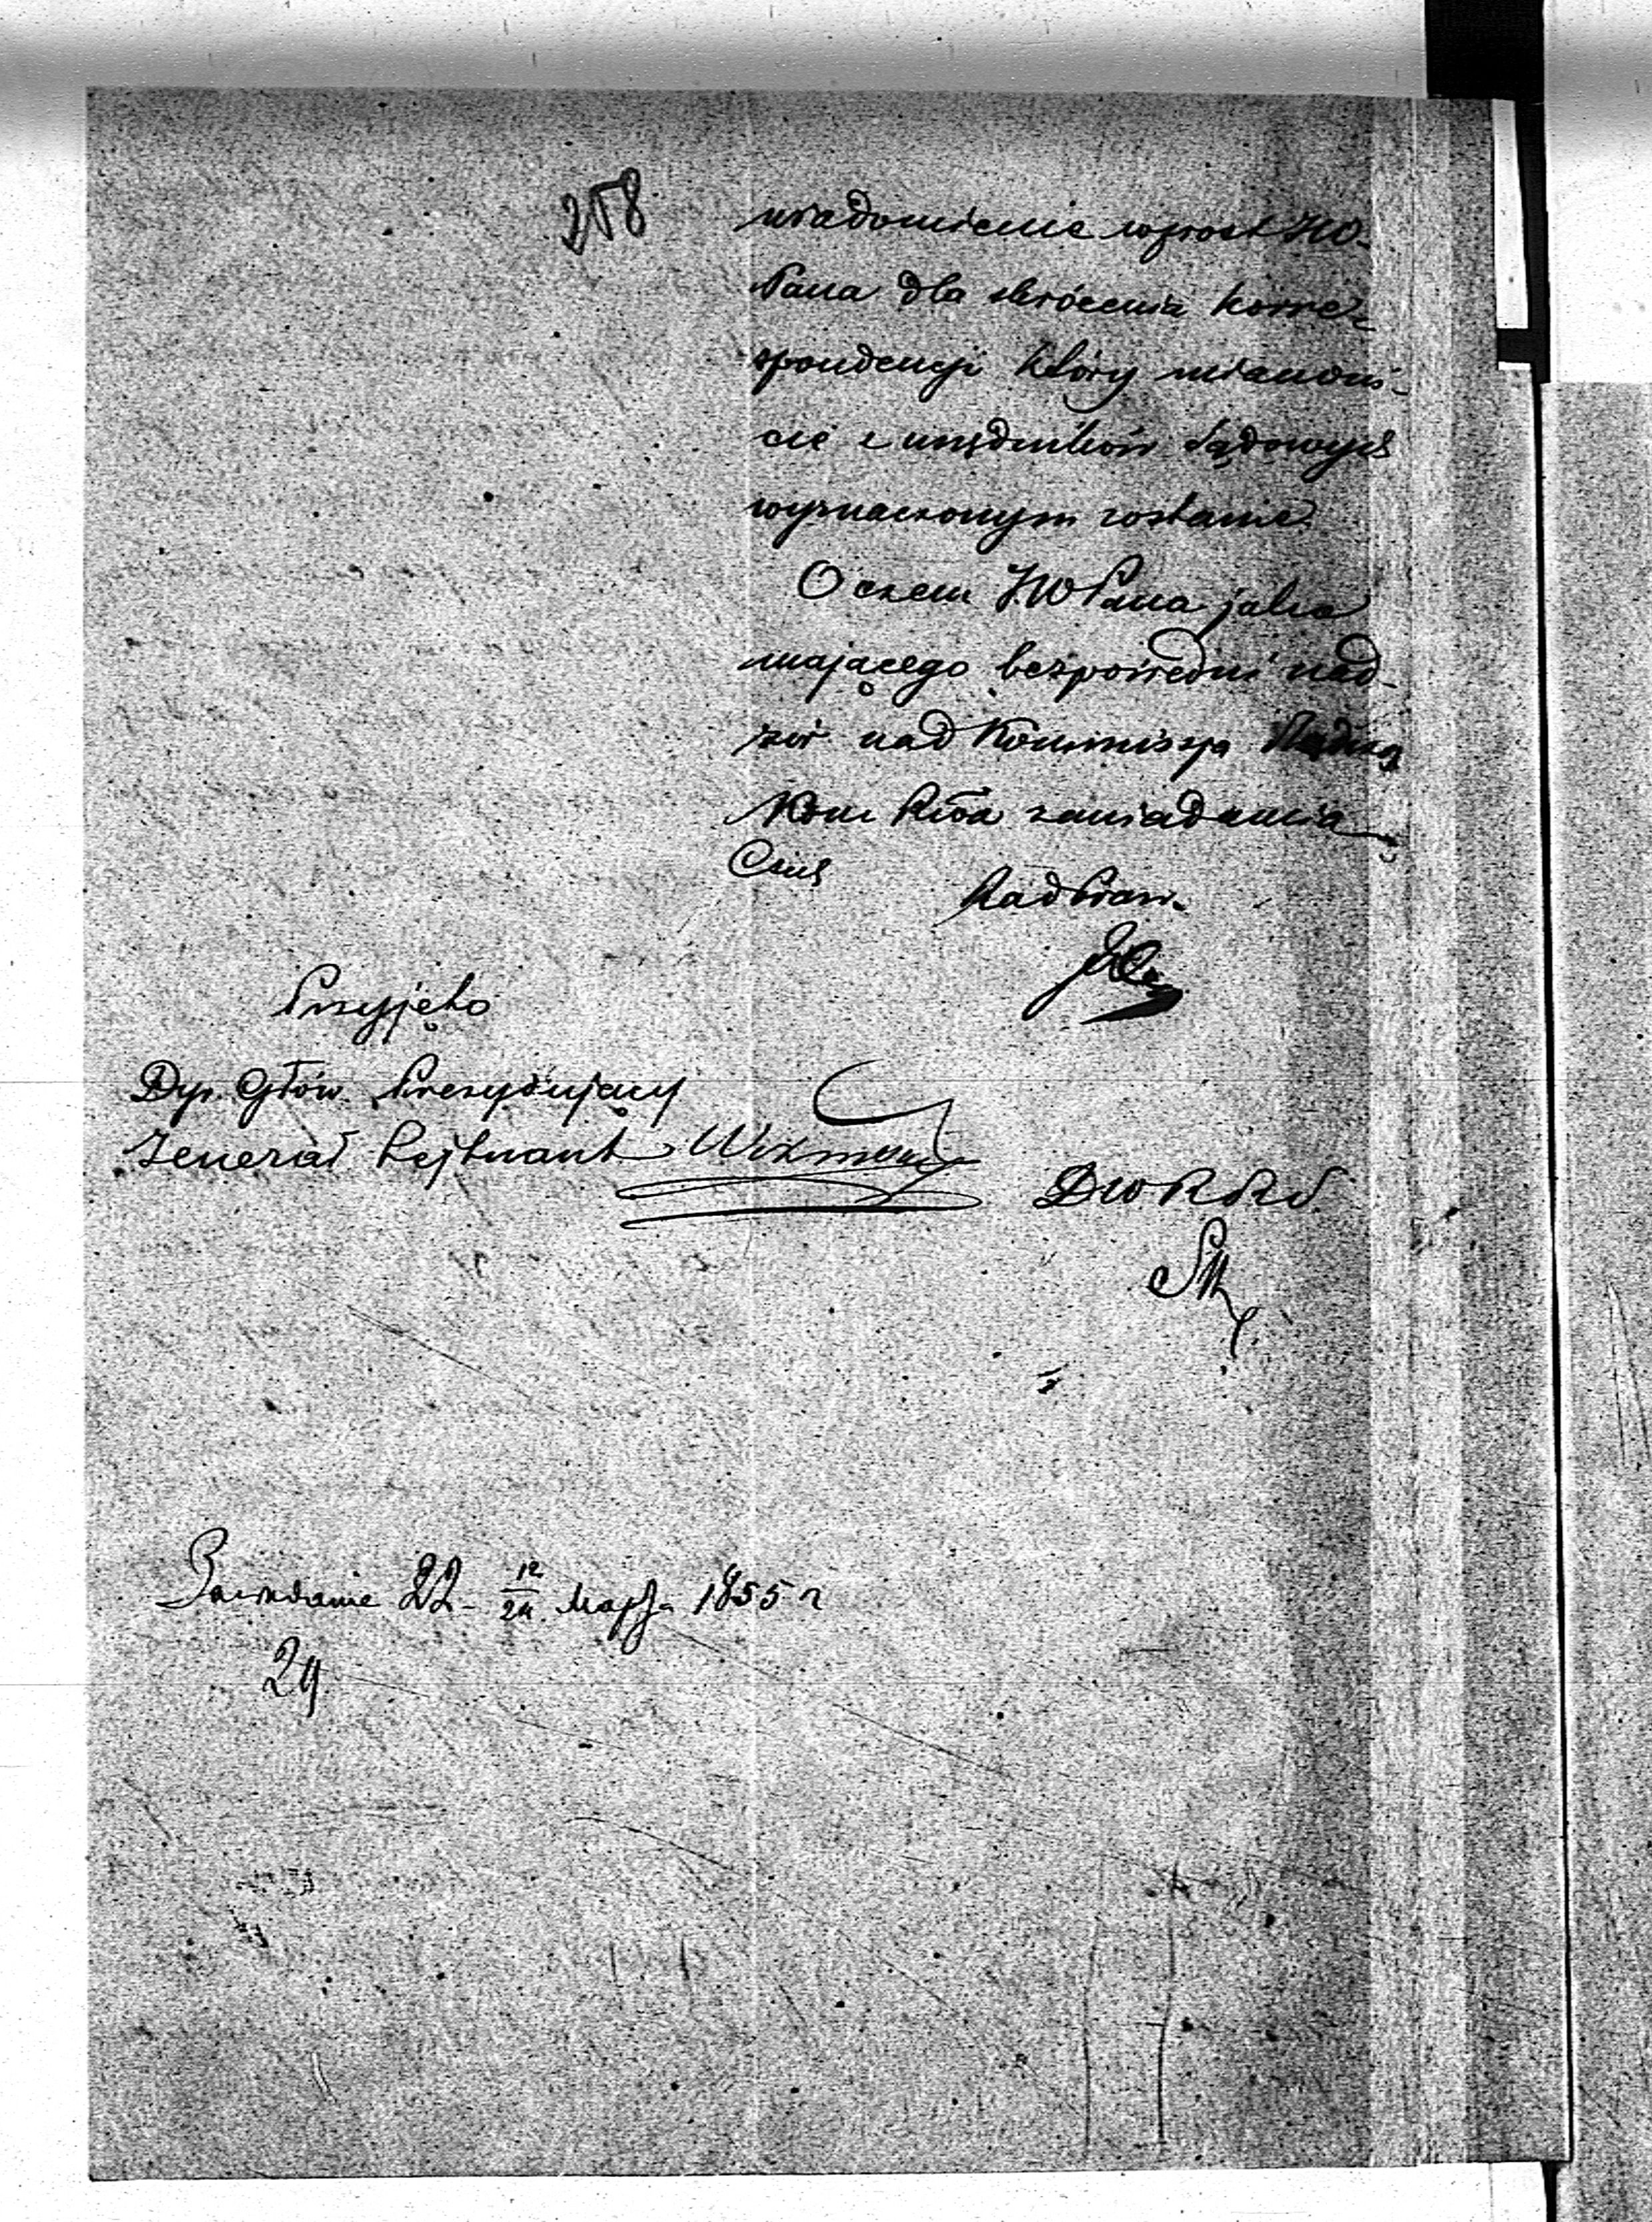 258
wiadomienie wprost JW
Pana dla skrócenia korre-
spondencji który mianowi-
cie z urzędników Sądowych
wyznaczonym zostanie.
O czem JW Pana jako
mającego bezpośredni nad-
zór nad Kommissją
Kom Rzd zawiadamia
Rad Stan.
Przyjęto
Dyr. Głów. Prezydujący
Jenerał Lejtnant Wikiński
Posiedzenie 22 - 12/24 Марта 1855 г
29